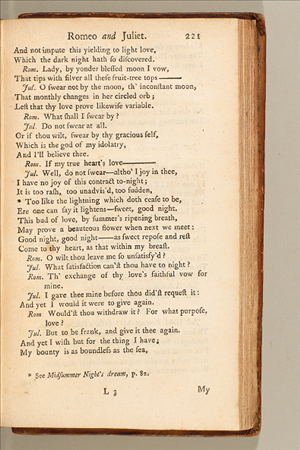 Romeo and Juliet. 221
And not impute this yielding to light love,
Which the dark night hath ſo diſcovered.
Rom. Lady, by yonder bleſſed moon I vow,
That tips with ſilver all theſe fruit-tree tops——
Jul. O ſwear not by the moon, th' inconſtant moon,
That monthly changes in her circled orb;
Leſt that thy love prove likewiſe variable.
Rom. What ſhall I ſwear by?
Jul. Do not ſwear at all.
Or if thou wilt, ſwear by thy gracious ſelf,
Which is the god of my idolatry,
And I'll believe thee.
Rom. If my true heart's love———
Jul. Well, do not ſwear—altho' I joy in thee,
I have no joy of this contract to-night;
It is too raſh, too unadvis'd, too ſudden,
* Too like the lightning which doth ceaſe to be,
Ere one can ſay it lightens—ſweet, good night.
This bud of love, by ſummer's ripening breath,
May prove a beauteous flower when next we meet:
Good night, good night——as ſweet repoſe and reſt
Come to thy heart, as that within my breaſt.
Rom. O wilt thou leave me ſo unſatisfy'd?
Jul. What ſatisfaction can'ſt thou have to night?
Rom. Th' exchange of thy love's faithful vow for
mine.
Jul. I gave thee mine before thou did'ſt requeſt it:
And yet I would it were to give again.
Rom. Would'ſt thou withdraw it? For what purpoſe,
love?
Jul. But to be frank, and give it thee again.
And yet I wiſh but for the thing I have;
My bounty is as boundleſs as the ſea,
* See Midſummer Night's dream, p. 82.
L 3 My